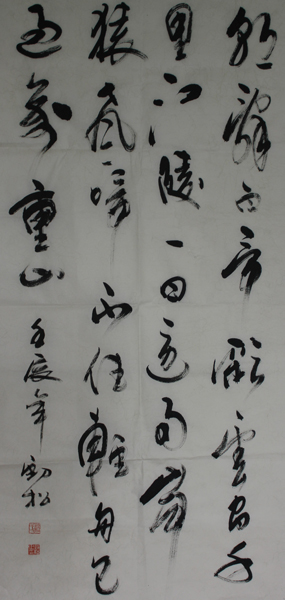 朝辭白帝彩雲間千
里江陵一日還兩岸
猿聲啼不住輕舟已
過萬重山
壬辰年勁松